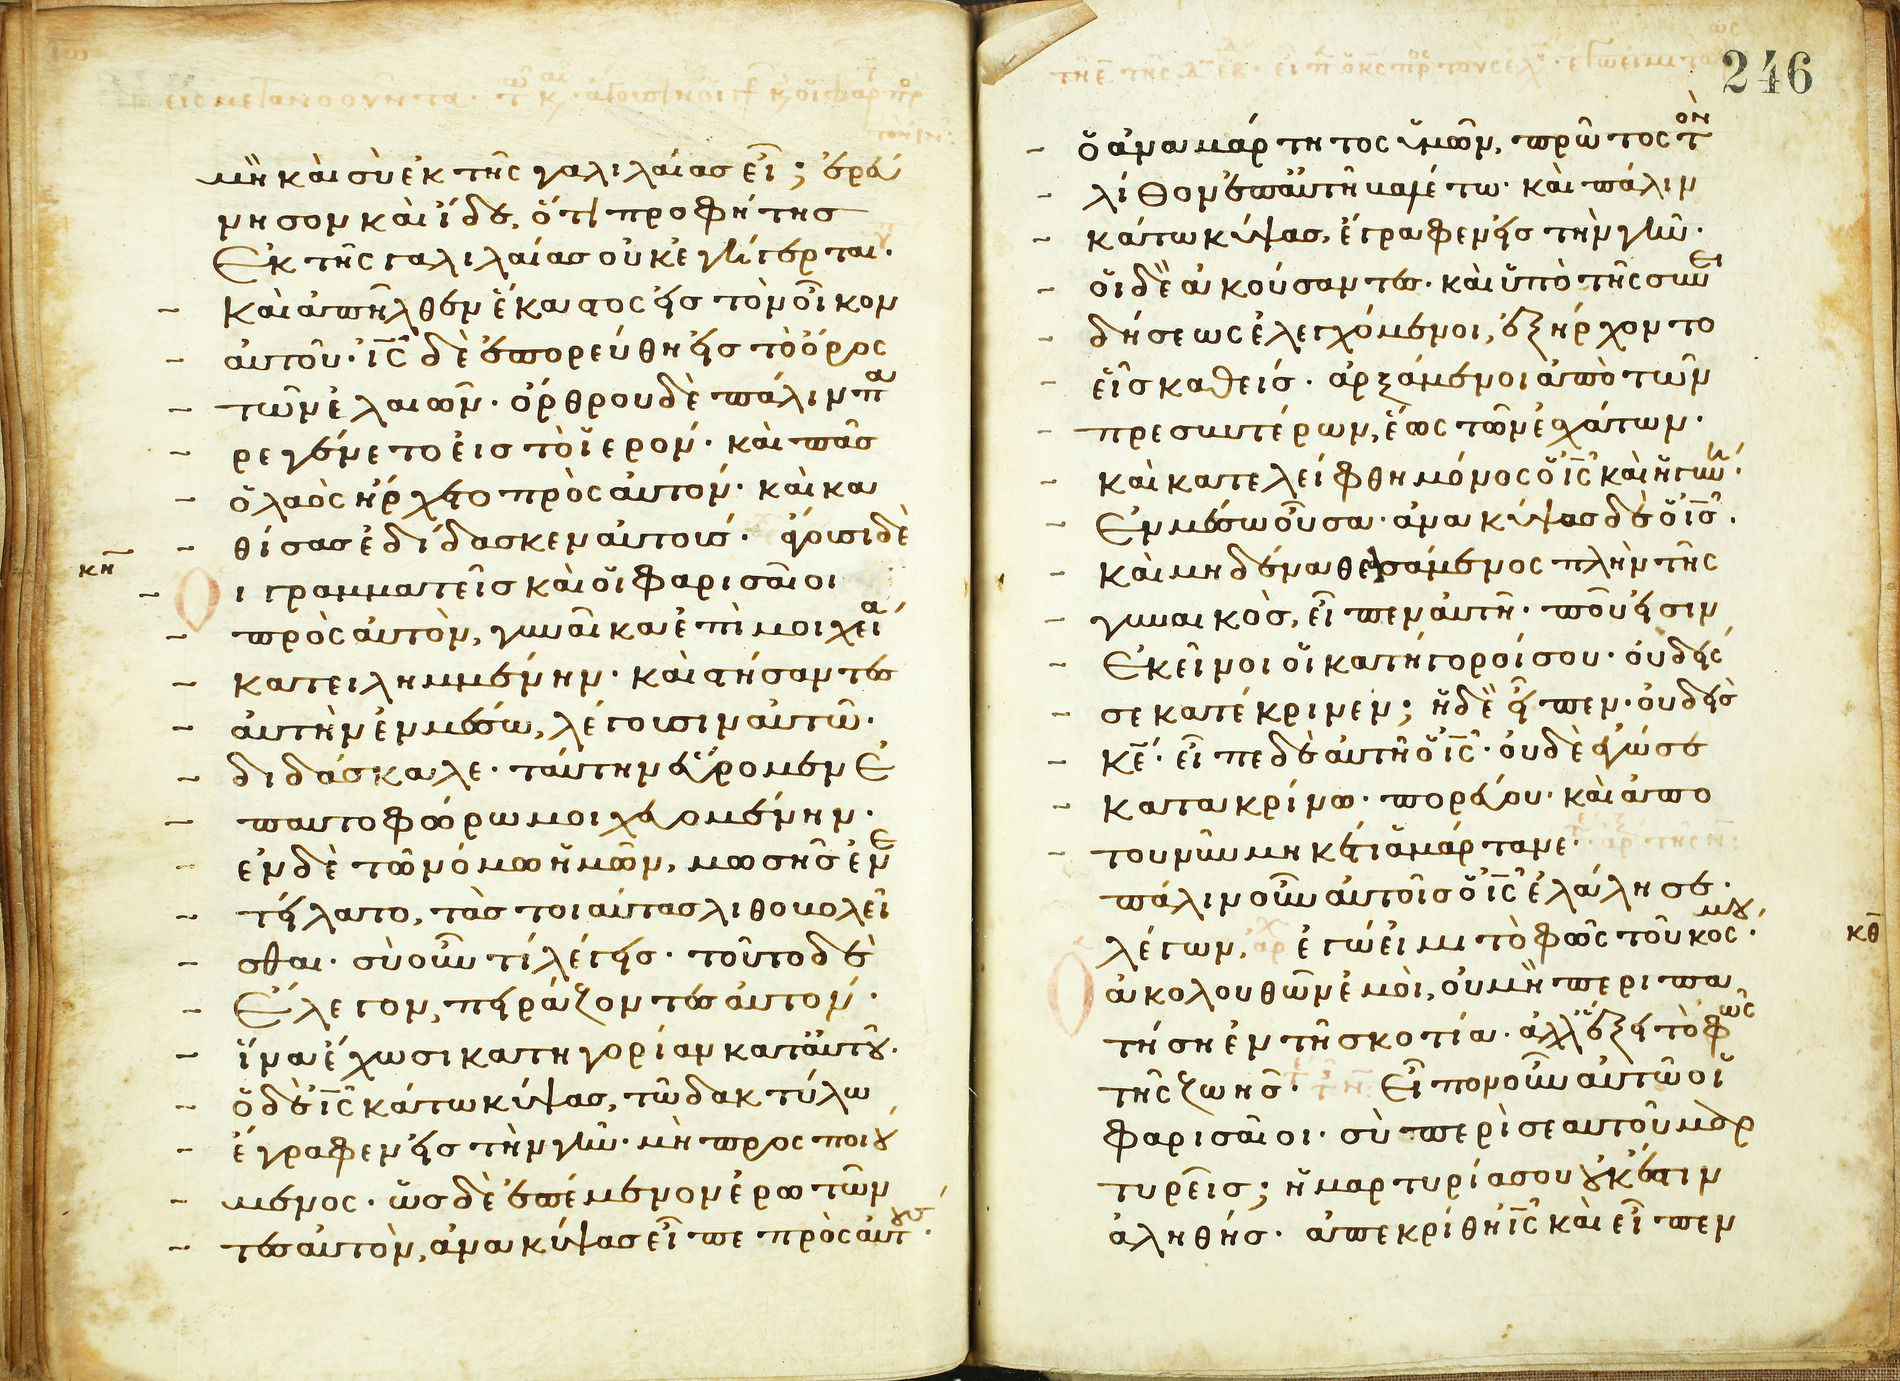 μὴ καὶ σὺ ἐκ τῆς γαλιλαίας εἶ; ἐρεύ
νησον καὶ ἴδε, ὅτι προφήτης
Ἐκ τῆς γαλιλαίας οὐκ ἐγήγερται.
Καὶ ἀπῆλθεν ἕκαστος εἰς τὸν οἶκον
αὐτοῦ· ἰς δὲ ἐπορεύθη εἰς τὸ ὄρος
τῶν ἐλαιῶν· ὄρθρου δὲ πάλιν πα
ρεγένετο εἰς τὸ ἱερόν· καὶ πᾶς
ὁ λαὸς ἤρχετο πρὸς αὐτόν· καὶ κα
θίσας ἐδίδασκεν αὐτούς· φέρουσι δὲ
κη
Οι γραμματεῖς καὶ οἱ φαρισαῖοι
πρὸς αὐτὸν, γυναῖκα ἐπὶ μοιχεία
κατειλημμένην· καὶ στήσαντες
αὐτὴν ἐν μέσω, λέγουσιν αὐτῶ·
διδάσκαλε· ταύτην εὕρομεν ἐ
παυτοφόρω μοιχευομένην·
ἐν δὲ τῶ νόμω ἡμῶν, μωσῆς ἐνε
τείλατο, τὰς τοιαύτας λιθοβολεῖ
σθαι· σὺ οὖν τί λέγεις· τοῦτο δὲ
Ἔλεγον, πειράζοντες αὐτόν·
ἵνα ἔχωσι κατηγορίαν κατ' αὐτοῦ·
ὁ δὲ ἰς κάτω κύψας, τῶ δακτύλω
ἔγραφεν εἰς τὴν γῆν· μὴ προσποιού
μενος· ὡς δὲ ἐπέμενον ἐρωτῶν
τες αὐτὸν, ἀνακύψας εἶπε πρὸς αὐτούς·
246
ὁ ἀναμάρτητος ὑμῶν, πρῶτος τὸν
λίθον ἐπ' αὐτῆ βαλέτω· καὶ πάλιν
κάτω κύψας, ἔγραφεν εἰς τὴν γῆν·
οἱ δὲ ἀκούσαντες· καὶ ὑπὸ τῆς συνει
δήσεως ἐλεγχόμενοι, ἐξήρχοντο
εἷς καθείς· ἀρξάμενοι ἀπὸ τῶν
πρεσβυτέρων, ἕως τῶν ἐσχάτων·
καὶ κατελείφθη μόνος ὁ ἰς καὶ ἡ γυνή·
Ἐν μέσω οὖσα· ἀνακύψας δὲ ὁ ἰς·
καὶ μηδένα θεασάμενος πλὴν τῆς
γυναικὸς, εἶπεν αὐτῆ· ποῦ εἰσιν
Ἐκεῖνοι οἱ κατήγοροί σου· οὐδείς
σε κατέκρινεν; ἡ δὲ εἶπεν· οὐδεὶς
κε· εἶπε δὲ αὐτῆ ὁ ἰς· οὐδὲ ἐγώ σε
κατακρίνω· πορεύου· καὶ ἀπὸ
τοῦ νῦν μηκέτι ἁμάρτανε·
πάλιν οὖν αὐτοῖς ὁ ἰς ἐλάλησε·
λέγων, ἐγώ εἰμι τὸ φῶς τοῦ κόσμου·
κθ
Ο ἀκολουθῶν ἐμοὶ, οὐ μὴ περιπα
τήση ἐν τῆ σκοτία· ἀλλ' ἕξει τὸ φῶς
τῆς ζωῆς· Εἶπον οὖν αὐτῶ οἱ
φαρισαῖοι· σὺ περὶ σεαυτοῦ μαρ
τυρεῖς; ἡ μαρτυρία σου οὐκ ἔστιν
ἀληθής· ἀπεκρίθη ἰς καὶ εἶπεν